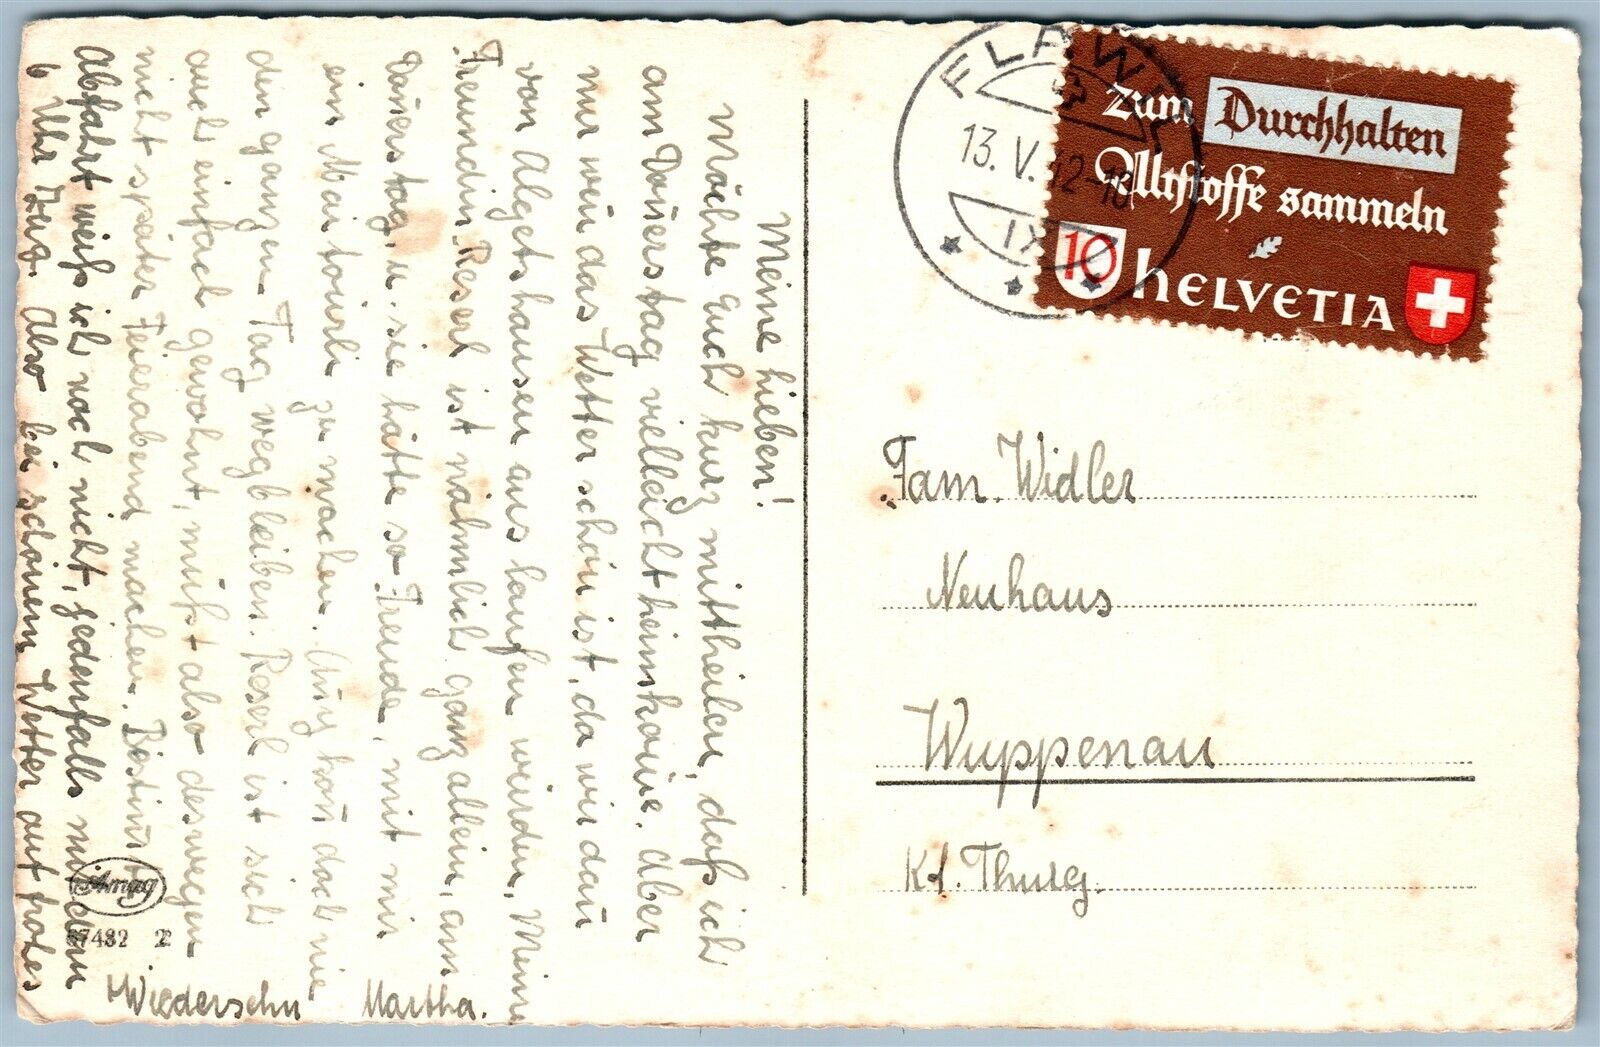 Meine lieben!
Möchte Euch kurz mittheilen, daß ich
am Dauerstag vielleicht heimkome. Aber
nur wen das Wetter schön ist, da wir dan
von Algetshausen aus laufen würden. Meine
Freundin Reserl ist nähmlich ganz allein, am
Dauerstag, u. sie hätte so Freude, mit mir
ein Maitourli zu machen. kan doch nie
den ganzen Tag wegbleiben. Reserl ist sich
auch einfach gewohnt, müßt also deswegen
nicht später Feierabend machen. Bestimmt
Abfahrt weiß ich noch nicht, jedenfalls mit dem
6 Uhr Zug. Also bei schönem Wetter auf frohes
Wiedersehn Martha.
Amag
67482 22
FLAWIL
13. V. 42-18
IX
zum Durchhalten
Altstoffe sammeln
10 HELVETIA
Fam. Widler
Neuhaus
Wuppenau
Kt. Thurg.